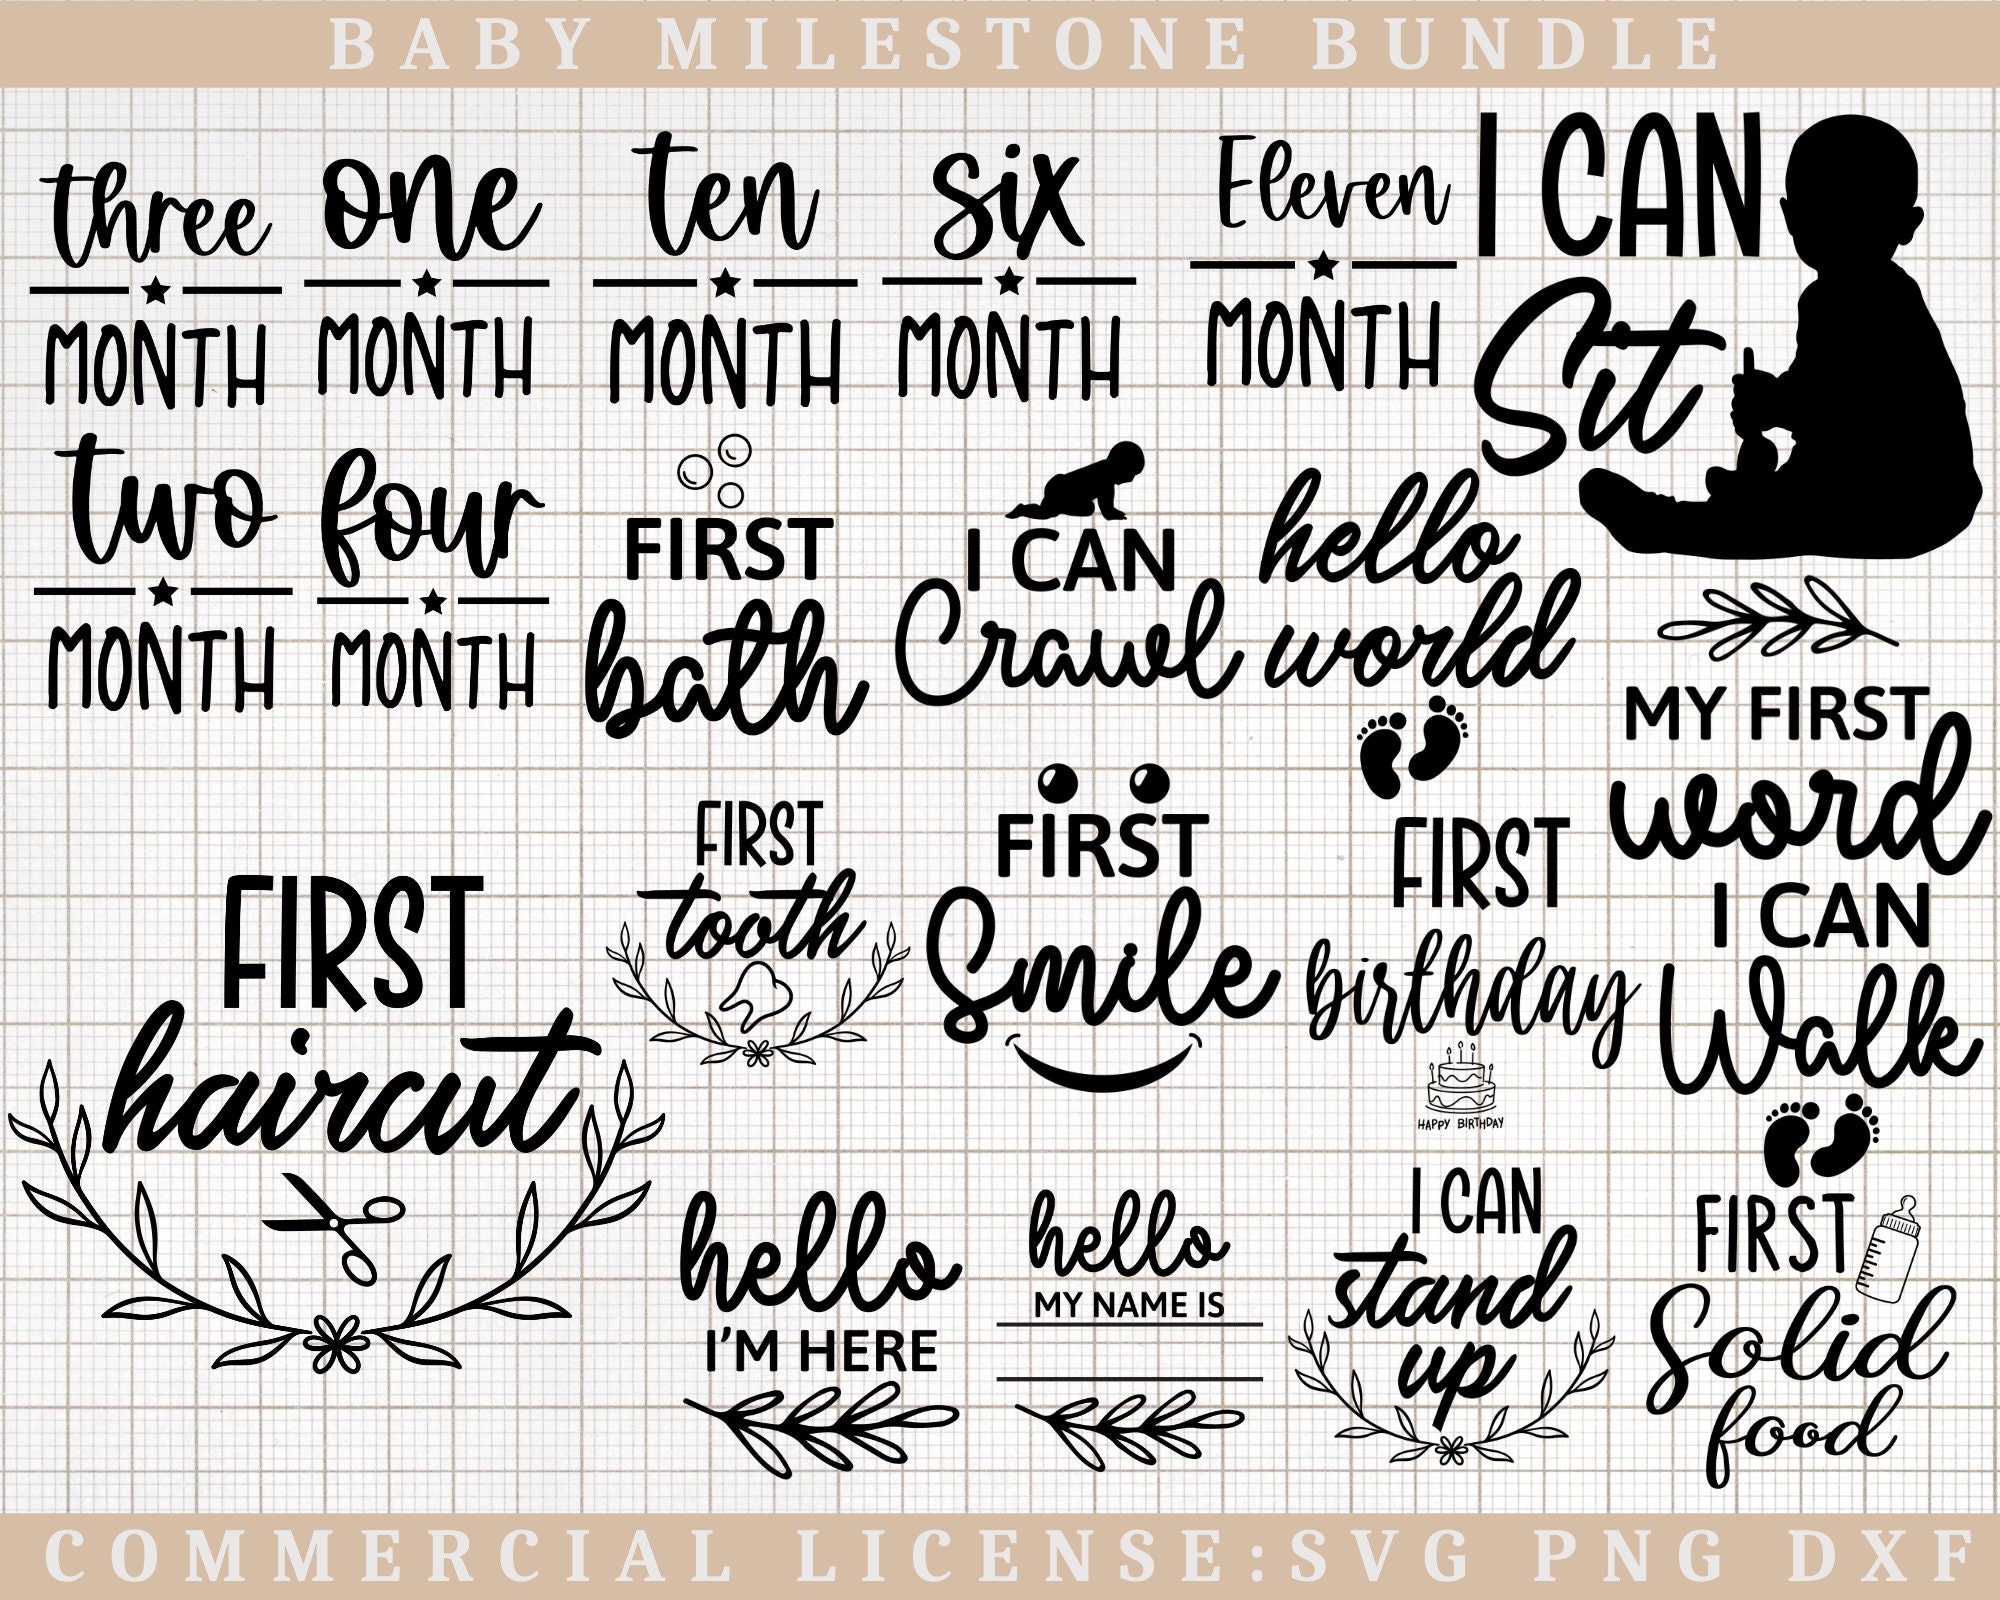 BABY MILESTONE BUNDLE
three
MONTH
one
MONTH
ten
MONTH
six
MONTH
Eleven
MONTH
I CAN
Sit
two
MONTH
four
MONTH
FIRST
bath
I CAN
Crawl
hello
world
MY FIRST
word
FIRST
haircut
FIRST
tooth
FIRST
Smile
FIRST
birthday
HAPPY BIRTHDAY
I CAN
Walk
hello
I'M HERE
hello
MY NAME IS
I CAN
stand
up
FIRST
Solid
food
COMMERCIAL LICENSE:SVG PNG DXF